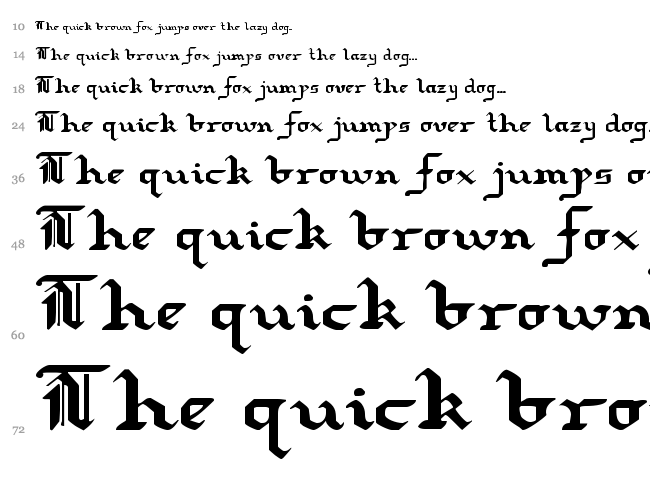 10 The quick brown fox jumps over the lazy dog...
14 The quick brown fox jumps over the lazy dog...
18 The quick brown fox jumps over the lazy dog...
24 The quick brown fox jumps over the lazy dog.
36 The quick brown fox jumps o
48 The quick brown fox
60 The quick brown
72 The quick bro